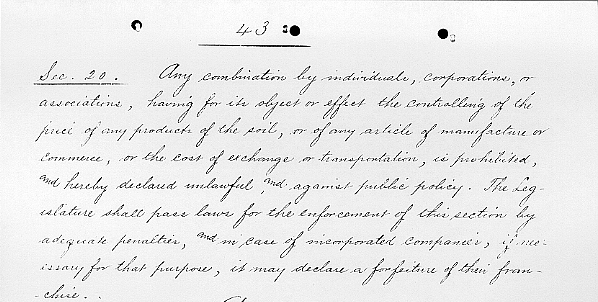 43
Sec. 20. Any combination by individuals, corporations, or
associations, having for its object or effect the controlling of the
price of any products of the soil, or of any article of manufacture or
commerce, or the cost of exchange or transportation, is prohibited,
and hereby declared unlawful, and against public policy. The Leg-
islature shall pass laws for the enforcement of this section by
adequate penalties, and in case of incorporated companies, if nec-
issary for that purpose, it may declare a forfeiture of their fran-
chise.